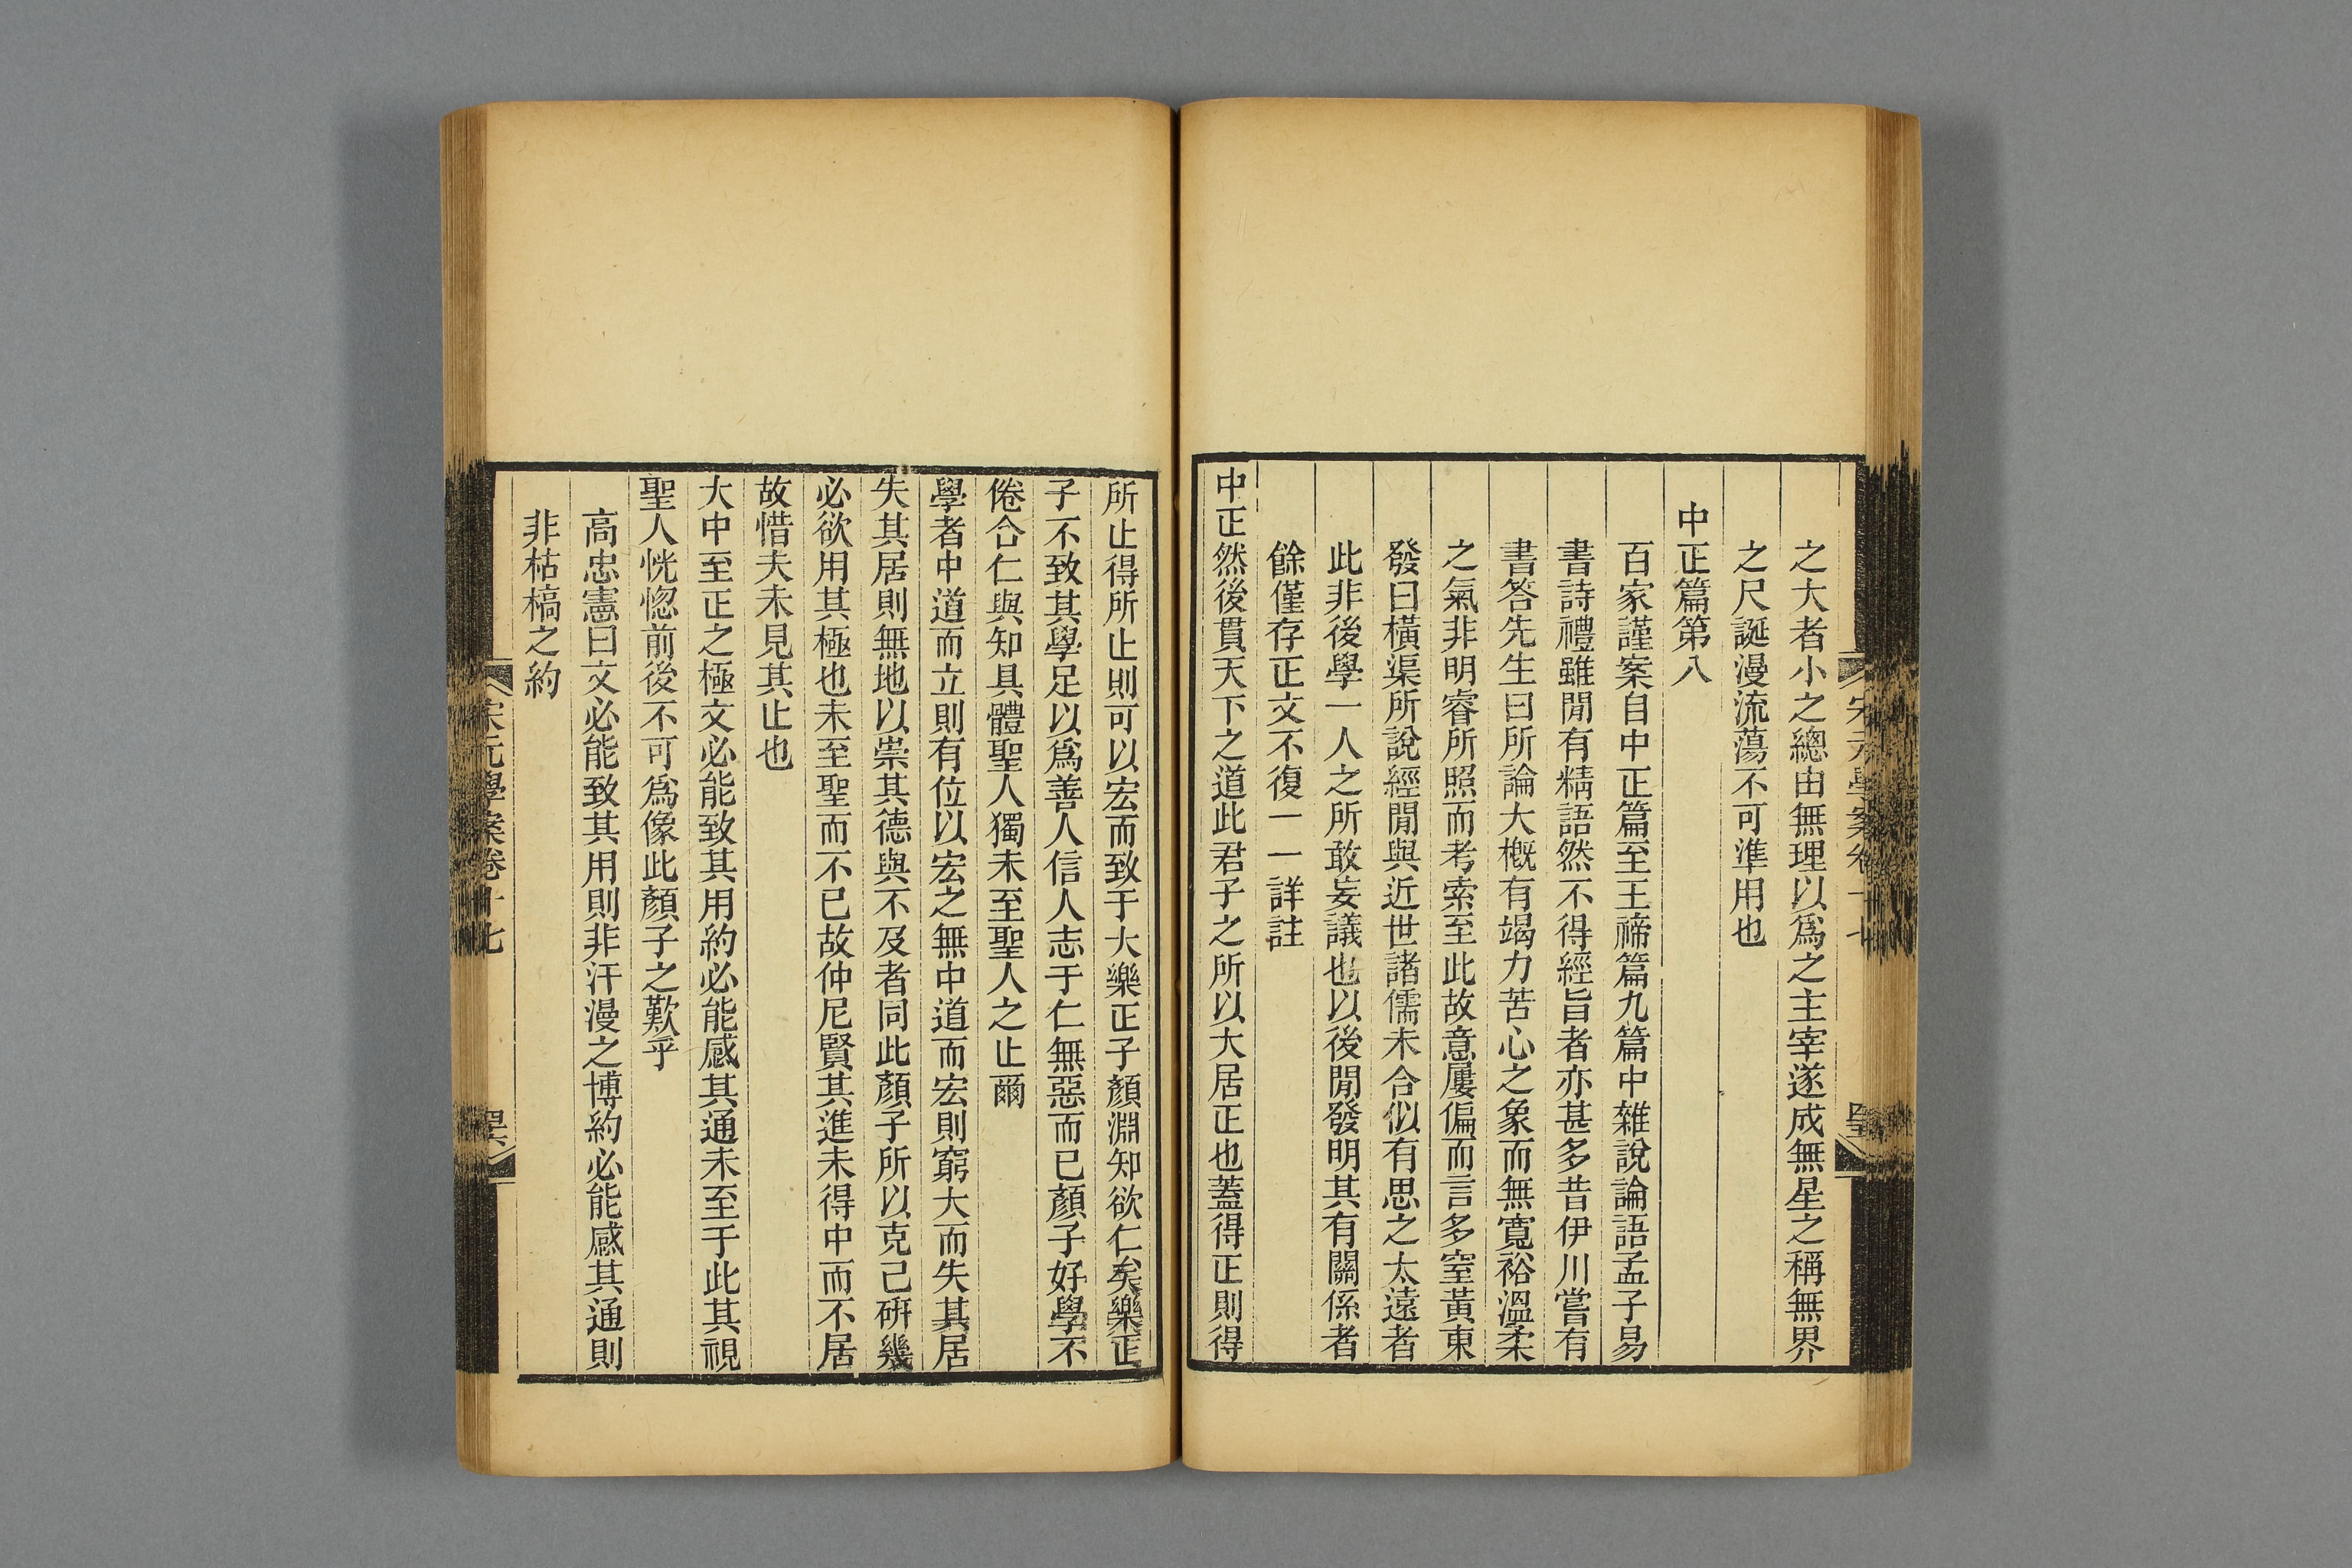 之大者小之總由無理以爲之主宰遂成無星之稱無界
之尺誕漫流蕩不可準用也
中正篇第八
百家謹案自中正篇至王禘篇九篇中雜說論語孟子易
書詩禮雖閒有精語然不得經旨者亦甚多昔伊川嘗有
書答先生曰所論大槪有竭力苦心之象而無寬裕溫柔
之氣非明睿所照而考索至此故意屢偏而言多窒黃東
發曰橫渠所說經閒與近世諸儒未合似有思之太遠者
此非後學一人之所敢妄議也以後閒發明其有關係者
餘僅存正文不復一一詳註
中正然後貫天下之道此君子之所以大居正也蓋得正則得
所止得所止則可以宏而致于大樂正子顏淵知欲仁矣樂正
子不致其學足以爲善人信人志于仁無惡而已顏子好學不
倦合仁與知具體聖人獨未至聖人之止爾
學者中道而立則有位以宏之無中道而宏則窮大而失其居
失其居則無地以崇其德與不及者同此顏子所以克己硏幾
必欲用其極也未至聖而不已故仲尼賢其進未得中而不居
故惜夫未見其止也
大中至正之極文必能致其用約必能感其通未至于此其視
聖人恍惚前後不可爲像此顏子之歎乎
高忠憲曰文必能致其用則非汗漫之博約必能感其通則
非枯槁之約
宋元學案卷十七